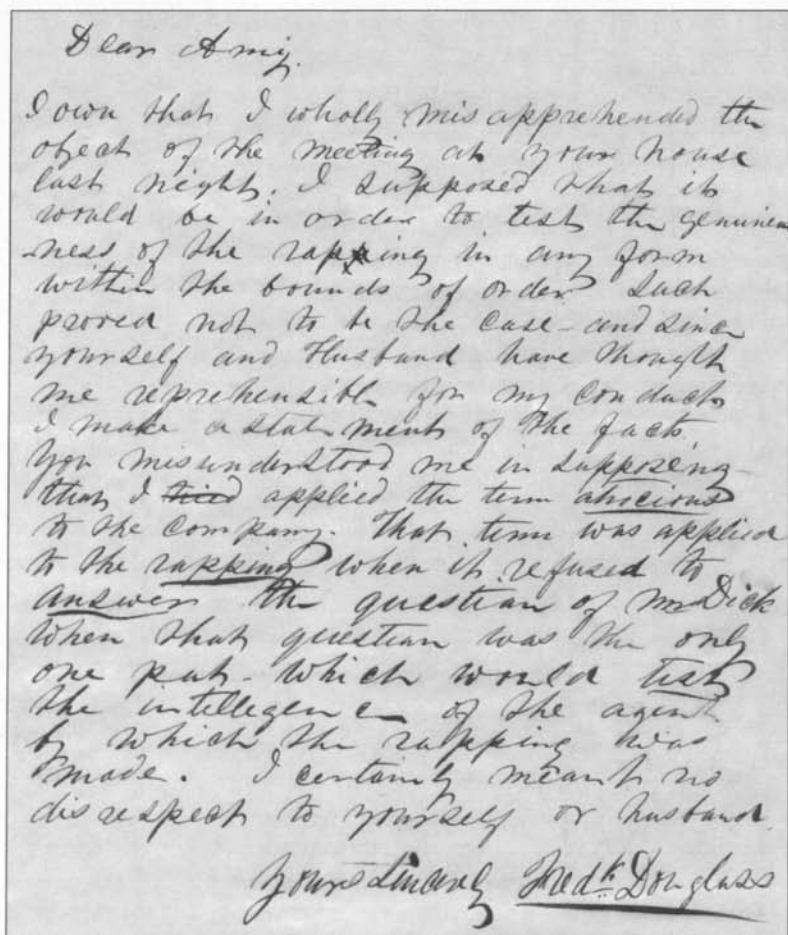 Dear Amy.
I own that I wholly misapprehended the
object of the meeting at your house
last night. I supposed that it
would be in order to test the genuine
-ness of the rapping in any form
within the bounds of order. Such
proved not to be the case - and since
yourself and Husband have thought
me reprehensible for my conduct
I make a statement of the facts.
You misunderstood me in supposing
that I applied the term atrocious
to the company. That term was applied
to the rapping when it refused to
answer the question of Mr Dick
when that question was the only
one put - which would test
the intellegence of the agent
by which the rapping was
made. I certainly meant no
disrespect to yourself or husband.
Yours Sincerely Fredk Douglass